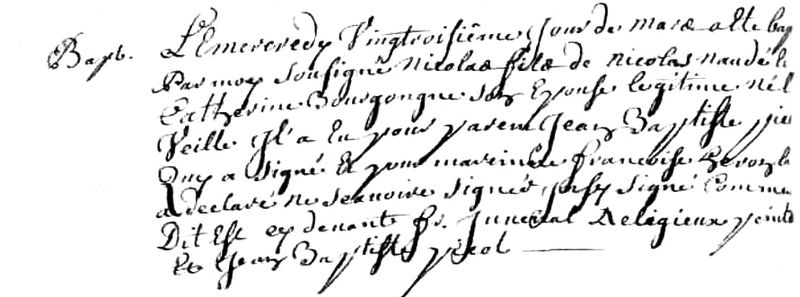 Bapt. L'Emercredy Vingtroisiême Jour de mars a Eté bap
Par moy sousigné Nicolas fils de Nicolas Naudé &
Catherine Bourgongne son Epouse legitime Né l
Veille Jl a Eu pour parein Jean Baptiste pie
Quy a signé Et pour mareinne francoise
a declaré ne scavoire signér, Jesy signé Comme
Dit Est cy devant fr. Juvenal Religieux peinit
Et Jean Baptiste picot